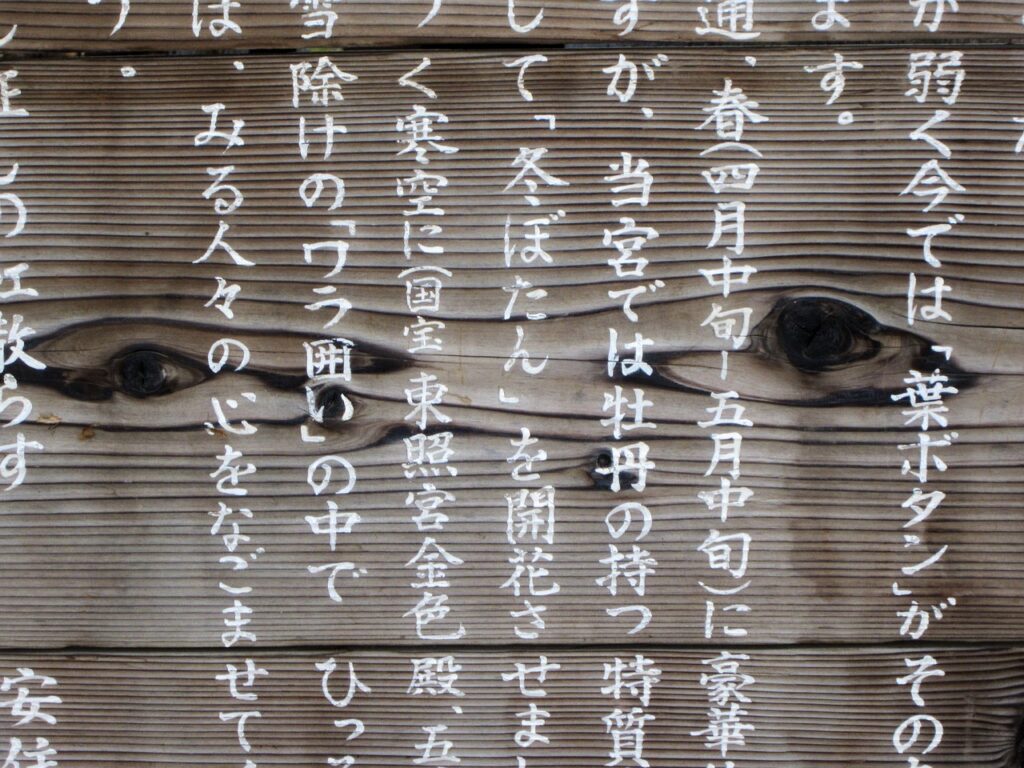 が弱く今では「葉ボタン」がその
ます。
通、春(四月中旬ー五月中旬)に豪華
すが、当宮では牡丹の持つ特質
して「冬ぼたん」を開花させま
く寒空に(国宝東照宮金色殿、五
雪除けの「ワラ囲い」の中でひっそ
は、みる人々の心をなごませて
。
しの紅散らす安住